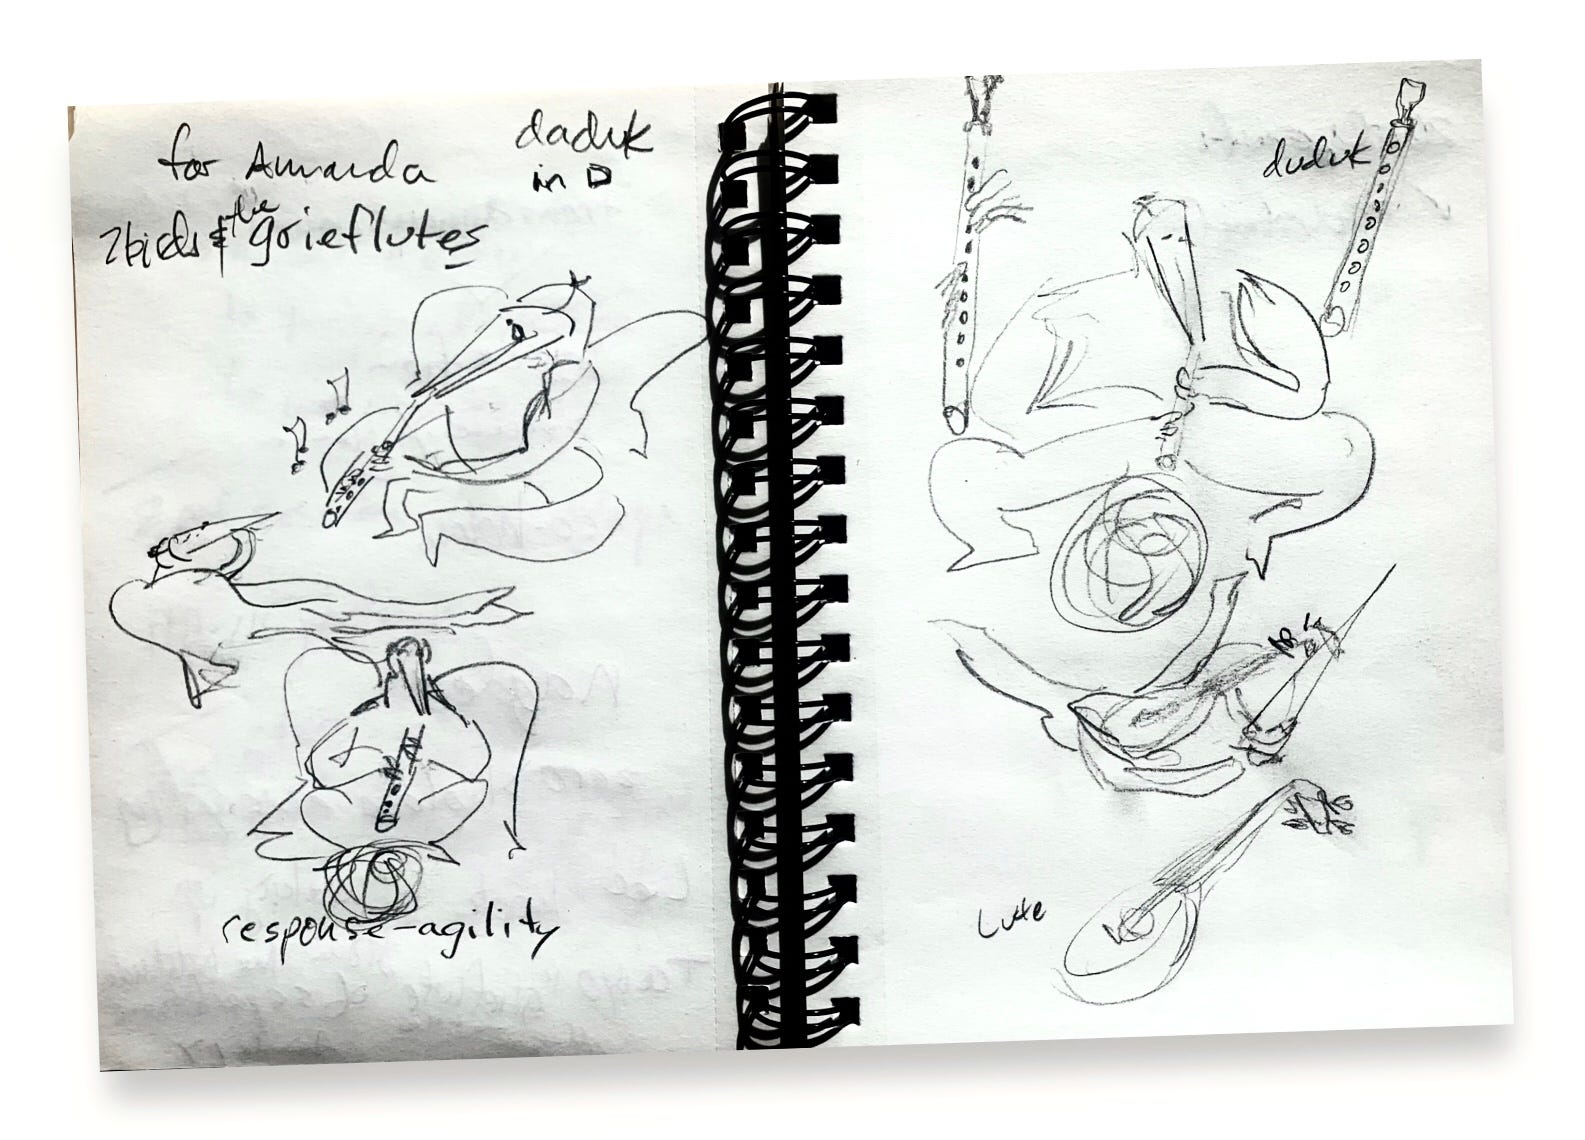 for Amanda
daduk
in D
2birds & the griefflutes
response-agility
duduk
Lute